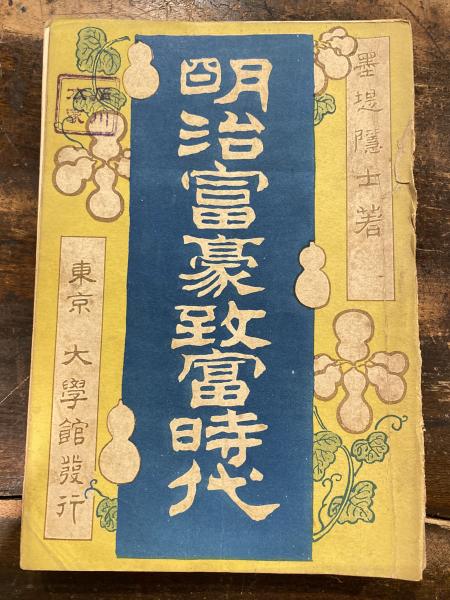 墨堤隱士著
明治富豪致富時代
東京 大學館發行